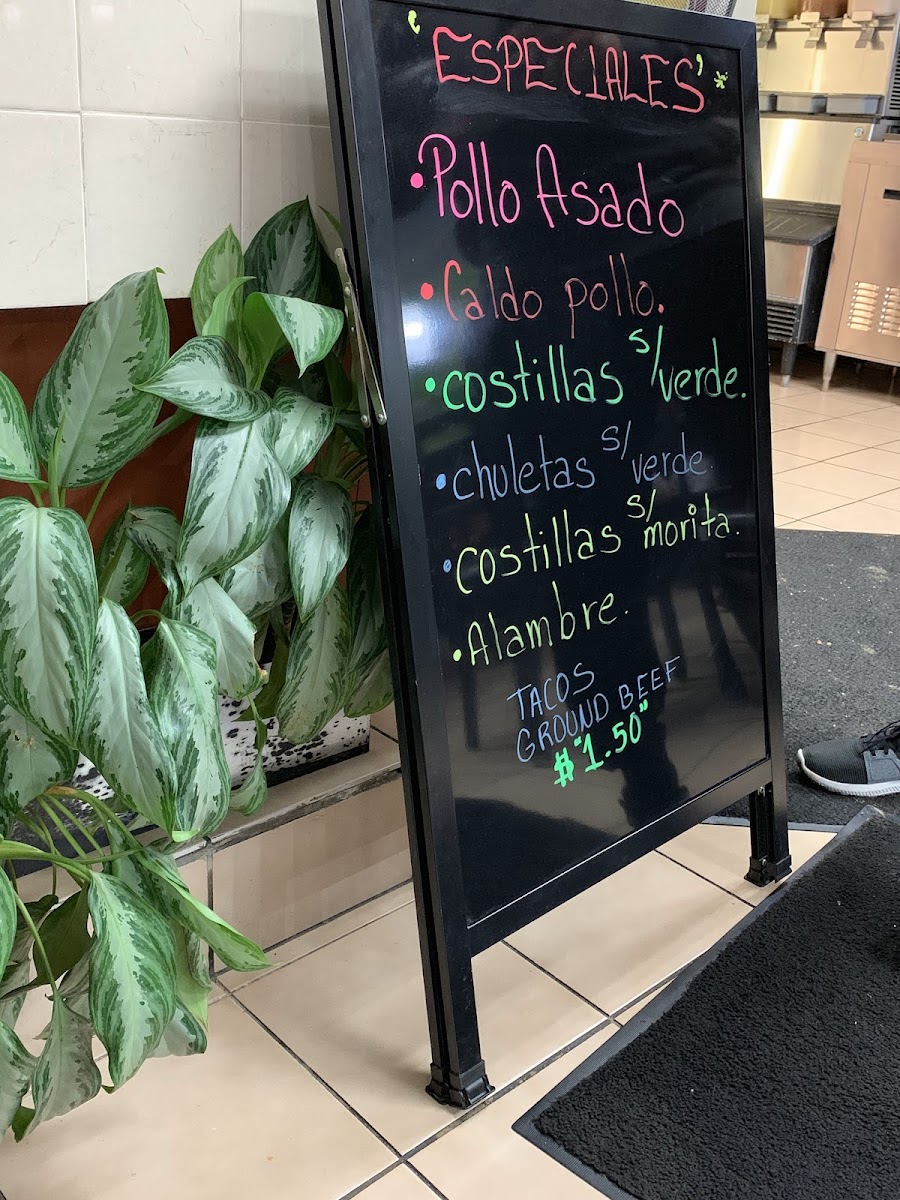 'ESPECIALES'*
• Pollo Asado
• Caldo pollo.
• costillas s/verde.
• chuletas s/verde.
• costillas s/morita.
• Alambre.
TACOS
GROUND BEEF
$"1.50"